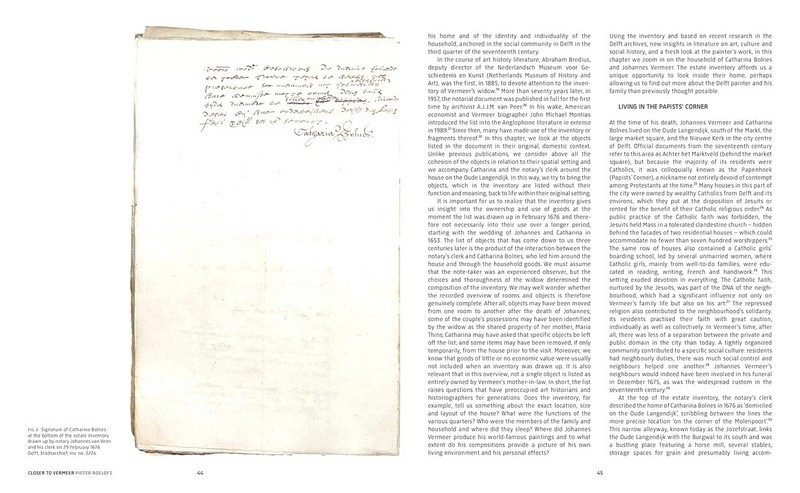 Catharina Bolnes
FIG. 2 Signature of Catharina Bolnes
at the bottom of the estate inventory
drawn up by notary Johannes van Veen
and his clerk on 29 February 1676.
Delft, Stadsarchief, inv. no. 2224
CLOSER TO VERMEER PIETER ROELOFS
44
his home and of the identity and individuality of the
household, anchored in the social community in Delft in the
third quarter of the seventeenth century.
In the course of art history literature, Abraham Bredius,
deputy director of the Nederlandsch Museum voor Ge-
schiedenis en Kunst (Netherlands Museum of History and
Art), was the first, in 1885, to devote attention to the inven-
tory of Vermeer's widow. More than seventy years later, in
1957, the notarial document was published in full for the first
time by archivist A.J.J.M. van Peer. In his wake, American
economist and Vermeer biographer John Michael Montias
introduced the list into the Anglophone literature in extenso
in 1989. Since then, many have made use of the inventory or
fragments thereof. In this chapter, we look at the objects
listed in the document in their original, domestic context.
Unlike previous publications, we consider above all the
cohesion of the objects in relation to their spatial setting and
we accompany Catharina and the notary's clerk around the
house on the Oude Langendijk. In this way, we try to bring the
objects, which in the inventory are listed without their
function and meaning, back to life within their original setting.
It is important for us to realize that the inventory gives
us insight into the ownership and use of goods at the
moment the list was drawn up in February 1676 and there-
fore not necessarily into their use over a longer period,
starting with the wedding of Johannes and Catharina in
1653. The list of objects that has come down to us three
centuries later is the product of the interaction between the
notary's clerk and Catharina Bolnes, who led him around the
house and through the household goods. We must assume
that the note-taker was an experienced observer, but the
choices and thoroughness of the widow determined the
composition of the inventory. We may well wonder whether
the recorded overview of rooms and objects is therefore
genuinely complete. After all, objects may have been moved
from one room to another after the death of Johannes;
some of the couple's possessions may have been identified
by the widow as the shared property of her mother, Maria
Thins; Catharina may have asked that specific objects be left
off the list, and some items may have been removed, if only
temporarily, from the house prior to the visit. Moreover, we
know that goods of little or no economic value were usually
not included when an inventory was drawn up. It is also
relevant that in this overview, not a single object is listed as
entirely owned by Vermeer's mother-in-law. In short, the list
raises questions that have preoccupied art historians and
historiographers for generations. Does the inventory, for
example, tell us something about the exact location, size
and layout of the house? What were the functions of the
various quarters? Who were the members of the family and
household and where did they sleep? Where did Johannes
Vermeer produce his world-famous paintings and to what
extent do his compositions provide a picture of his own
living environment and his personal effects?
Using the inventory and based on recent research in the
Delft archives, new insights in literature on art, culture and
social history, and a fresh look at the painter's work, in this
chapter we zoom in on the household of Catharina Bolnes
and Johannes Vermeer. The estate inventory affords us a
unique opportunity to look inside their home, perhaps
allowing us to find out more about the Delft painter and his
family than previously thought possible.
LIVING IN THE PAPISTS' CORNER
At the time of his death, Johannes Vermeer and Catharina
Bolnes lived on the Oude Langendijk, south of the Markt, the
large market square, and the Nieuwe Kerk in the city centre
of Delft. Official documents from the seventeenth century
refer to this area as Achter het Marktveld (behind the market
square), but because the majority of its residents were
Catholics, it was colloquially known as the Papenhoek
(Papists' Corner), a nickname not entirely devoid of contempt
among Protestants at the time. Many houses in this part of
the city were owned by wealthy Catholics from Delft and its
environs, which they put at the disposition of Jesuits or
rented for the benefit of their Catholic religious order. As
public practice of the Catholic faith was forbidden, the
Jesuits held Mass in a tolerated clandestine church – hidden
behind the facades of two residential houses – which could
accommodate no fewer than seven hundred worshippers.
The same row of houses also contained a Catholic girls'
boarding school, led by several unmarried women, where
Catholic girls, mainly from well-to-do families, were edu-
cated in reading, writing, French and handiwork. This
setting exuded devotion in everything. The Catholic faith,
nurtured by the Jesuits, was part of the DNA of the neigh-
bourhood, which had a significant influence not only on
Vermeer's family life but also on his art. The repressed
religion also contributed to the neighbourhood's solidarity.
Its residents practised their faith with great caution,
individually as well as collectively. In Vermeer's time, after
all, there was less of a separation between the private and
public domain in the city than today. A tightly organized
community contributed to a specific social culture: residents
had neighbourly duties, there was much social control and
neighbours helped one another. Johannes Vermeer's
neighbours would indeed have been involved in his funeral
in December 1675, as was the widespread custom in the
seventeenth century.
At the top of the estate inventory, the notary's clerk
described the home of Catharina Bolnes in 1676 as 'domiciled
on the Oude Langendijk', scribbling between the lines the
more precise location 'on the corner of the Molenpoort'.
This narrow alleyway, known today as the Jozefstraat, links
the Oude Langendijk with the Burgwal to its south and was
a bustling place featuring a horse mill, several stables,
storage spaces for grain and presumably living accom-
45